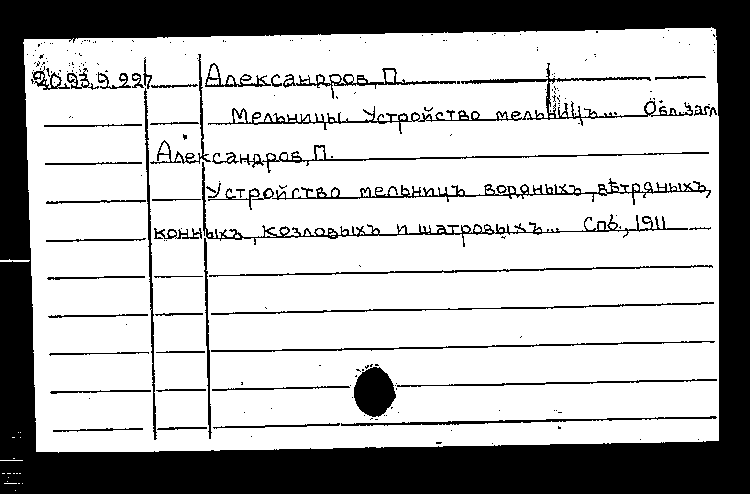 20.93.9.227 Александров, П.
Мельницы. Устройство мельницъ... Обл.загл
Александров, П.
Устройство мельницъ водяныхъ, вѣтряныхъ,
конныхъ, козловыхъ и шатровыхъ... Спб., 1911